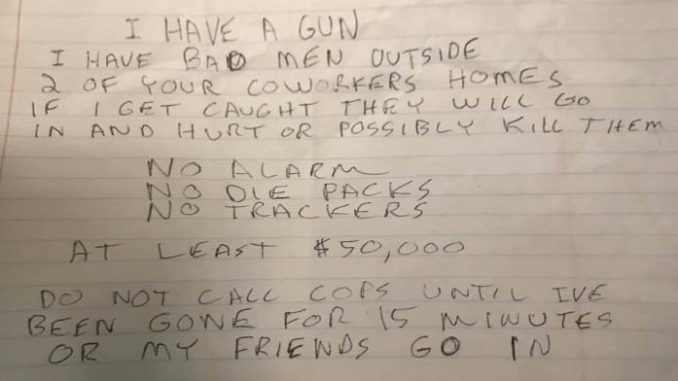 I HAVE A GUN
I HAVE BAD MEN OUTSIDE
2 OF YOUR COWORKERS HOMES
IF I GET CAUGHT THEY WILL GO
IN AND HURT OR POSSIBLY KILL THEM
NO ALARM
NO DIE PACKS
NO TRACKERS
AT LEAST $50,000
DO NOT CALL COPS UNTIL IVE
BEEN GONE FOR 15 MINUTES
OR MY FRIENDS GO IN